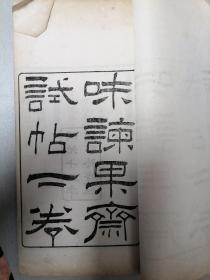 味諫果齋
試帖一卷